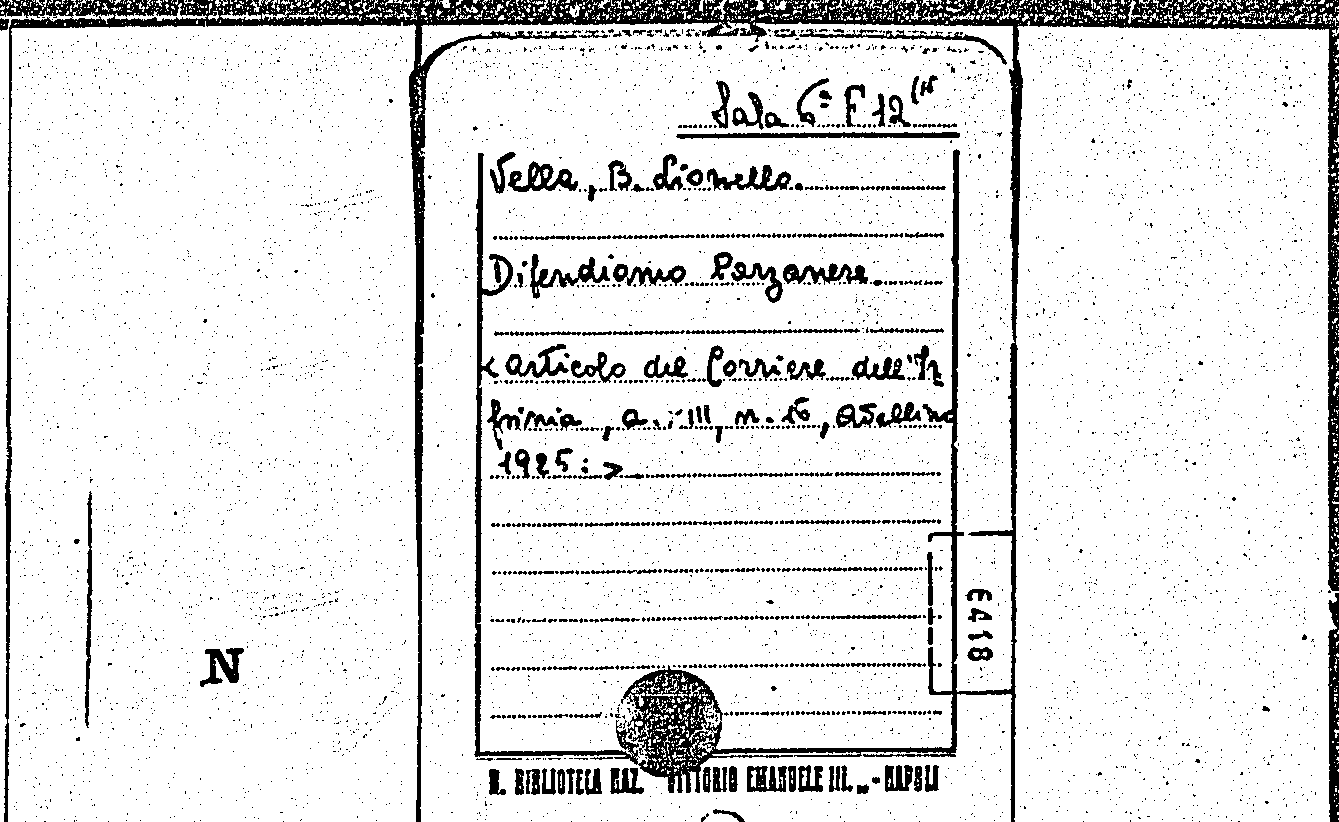 Sala 6ª F 12 (16
Vella, B. Lionello.
Difendiamo Parzanese.
<Articolo del Corriere dell'Ir
pinia, a. III, n. 16, Avellino
1925: >
6418
N
R. BIBLIOTECA NAZ. VITTORIO EMANUELE III. - NAPOLI